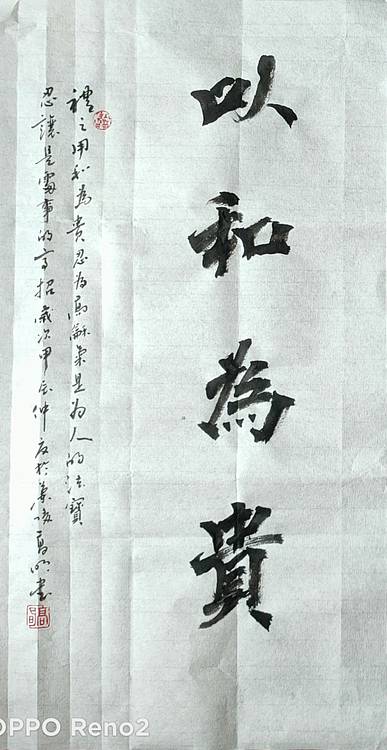 以和為貴
禮之用和為貴忍為高龢氣是為人的法寶
忍讓是處事的高招歲次甲辰仲夏於陵高明書
OPPO Reno2